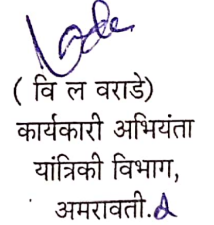 ( वि ल वराडे)
कार्यकारी अभियंता
यांत्रिकी विभाग,
अमरावती.